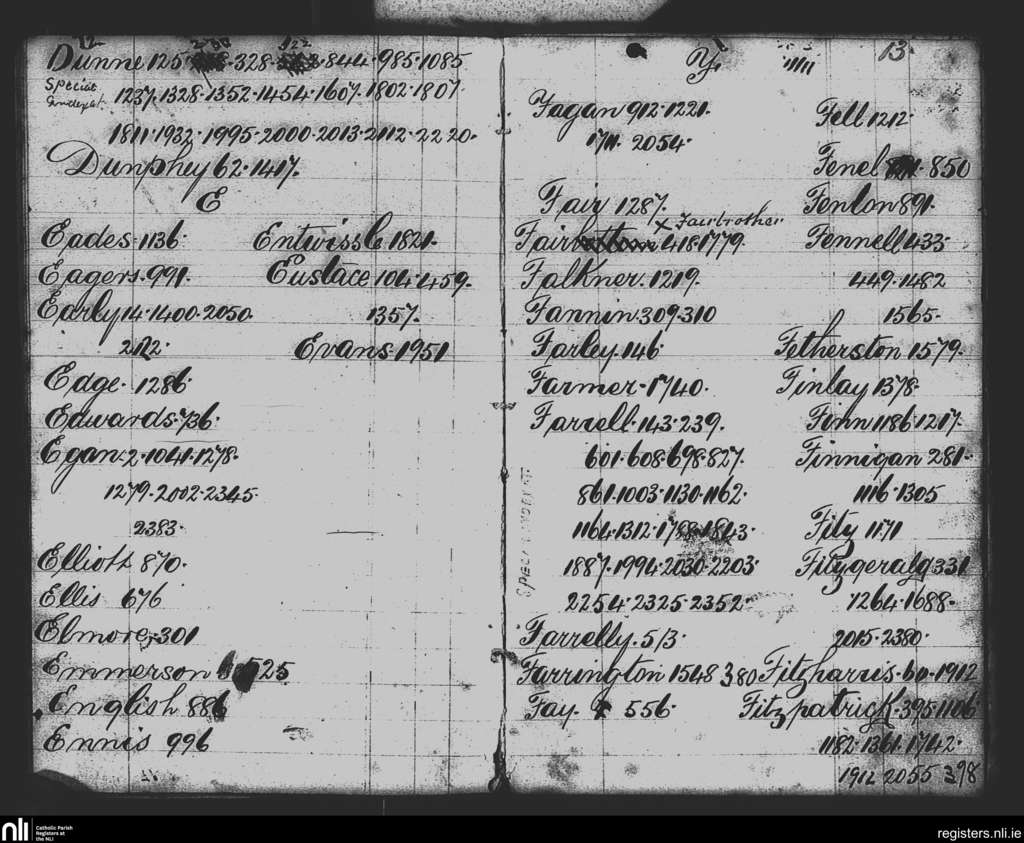 12
Dunne 125. 328. 844. 985. 1085
Special Index at 1237. 1328. 1352. 1454. 1607. 1802. 1807.
1811. 1932. 1995. 2000. 2013. 2112. 2220.
Dunphey 62. 1417.
E
Eades. 1136.
Eagers. 991.
Early 14. 1400. 2050.
2112.
Edge. 1286.
Edwards. 736.
Egan. 2. 1041. 1278.
1279. 2002. 2345.
2383.
Elliott 870.
Ellis 676
Elmore, 301
Emmerson 525
English 886
Ennis 996
Entwissle 1821.
Eustace 104. 459.
1357.
Evans. 1951
13
F
Fagan 912. 1221.
1711. 2054.
Fair 1287.
Fairbrother
Fair 418. 1779.
Falkner. 1219.
Fannin 309. 310
Farley. 146
Farmer. 1740.
Farrell. 143. 239.
601. 608. 698. 827.
861. 1003. 1130. 1162.
1164. 1312. 1788. 1843.
1887. 1994. 2030. 2203.
2254. 2325. 2352.
SPECIAL INDEX AT
Farrelly. 513.
Farrington 1548 380
Fay. 556.
Fell 1212.
Fenel 850
Fenlon 891.
Fennell 433.
449. 1482
1565.
Fetherston 1579.
Finlay 1378.
Finn 1186. 1217.
Finnigan 281.
1116. 1305
Fitz 1171
Fitzgerald 331
1264. 1688.
2015. 2380.
Fitzharris. 60. 1912
Fitzpatrick. 395. 1106
1182. 1361. 1742.
1912 2055 398
nli
Catholic Parish
Registers at
the NLI
registers.nli.ie